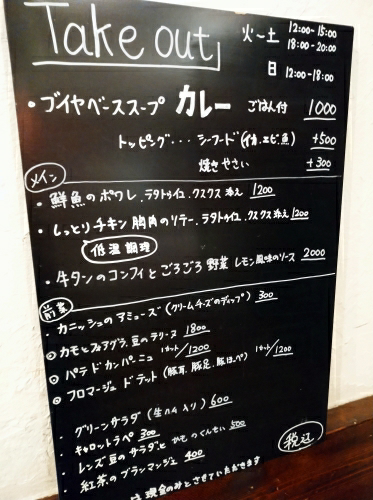 Take out
火〜土 12:00〜15:00
18:00〜20:00
日 12:00〜18:00
・ブイヤベーススープ カレー ごはん付 1000
トッピング・・・シーフード(イカ、エビ、魚) +500
焼きやさい +300
メイン
・鮮魚のポワレ、ラタトゥイユ、クスクス添え 1200
・しっとりチキン胸肉のソテー、ラタトゥイユ、クスクス添え 1200
低温調理
・牛タンのコンフィとごろごろ野菜 レモン風味のソース 2000
前菜
カニッシュのアミューズ(クリームチーズのディップ) 300
カモとフォアグラ、豆のテリーヌ 1800
パテ ド カンパーニュ 1カット/1200
フロマージュ ド テット(豚耳、豚足、豚ほっぺ) 1カット/1200
・グリーンサラダ(生ハム入り) 600
・キャロットラペ 300
・レンズ豆のサラダと かものくんせい 500
・紅茶のブランマンジェ 400
税込
現金のみとさせていただきます